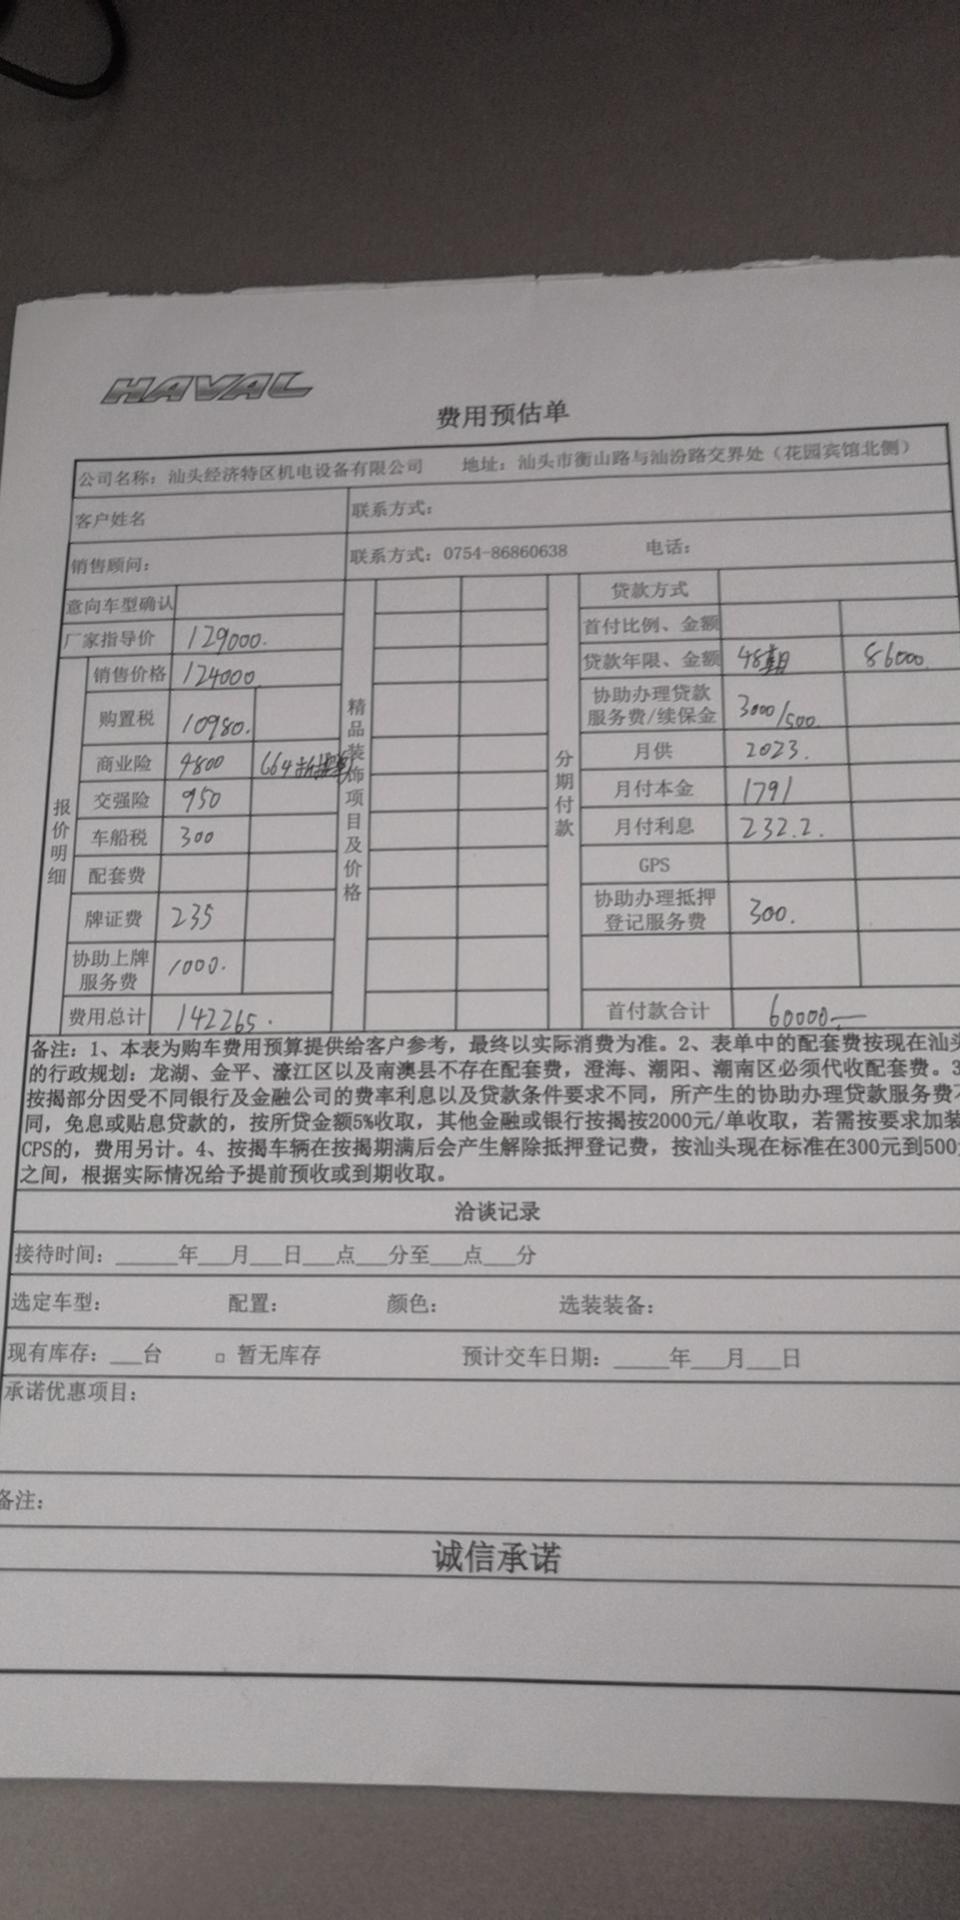 HAVAL
费用预估单
公司名称：汕头经济特区机电设备有限公司 地址：汕头市衡山路与汕汾路交界处（花园宾馆北侧）
客户姓名 联系方式：
销售顾问： 联系方式：0754-86860638 电话：
意向车型确认 贷款方式
厂家指导价 129000. 首付比例、金额
销售价格 124000 贷款年限、金额 48期 86000.
购置税 10980. 协助办理贷款服务费/续保金 3000/500
商业险 4800 664 月供 2023.
交强险 950 月付本金 1791
车船税 300 月付利息 232.2.
配套费 GPS
牌证费 235 协助办理抵押登记服务费 300.
协助上牌服务费 1000.
费用总计 142265. 首付款合计 60000
报价明细
精品装饰项目及价格
分期付款
备注：1、本表为购车费用预算提供给客户参考，最终以实际消费为准。2、表单中的配套费按现在汕头
的行政规划：龙湖、金平、濠江区以及南澳县不存在配套费，澄海、潮阳、潮南区必须代收配套费。3
按揭部分因受不同银行及金融公司的费率利息以及贷款条件要求不同，所产生的协助办理贷款服务费不
同，免息或贴息贷款的，按所贷金额5%收取，其他金融或银行按揭按2000元/单收取，若需按要求加装
CPS的，费用另计。4、按揭车辆在按揭期满后会产生解除抵押登记费，按汕头现在标准在300元到500
之间，根据实际情况给予提前预收或到期收取。
洽谈记录
接待时间：____年__月__日__点__分至__点__分
选定车型： 配置： 颜色： 选装装备：
现有库存：__台 □ 暂无库存 预计交车日期：____年__月__日
承诺优惠项目：
备注：
诚信承诺